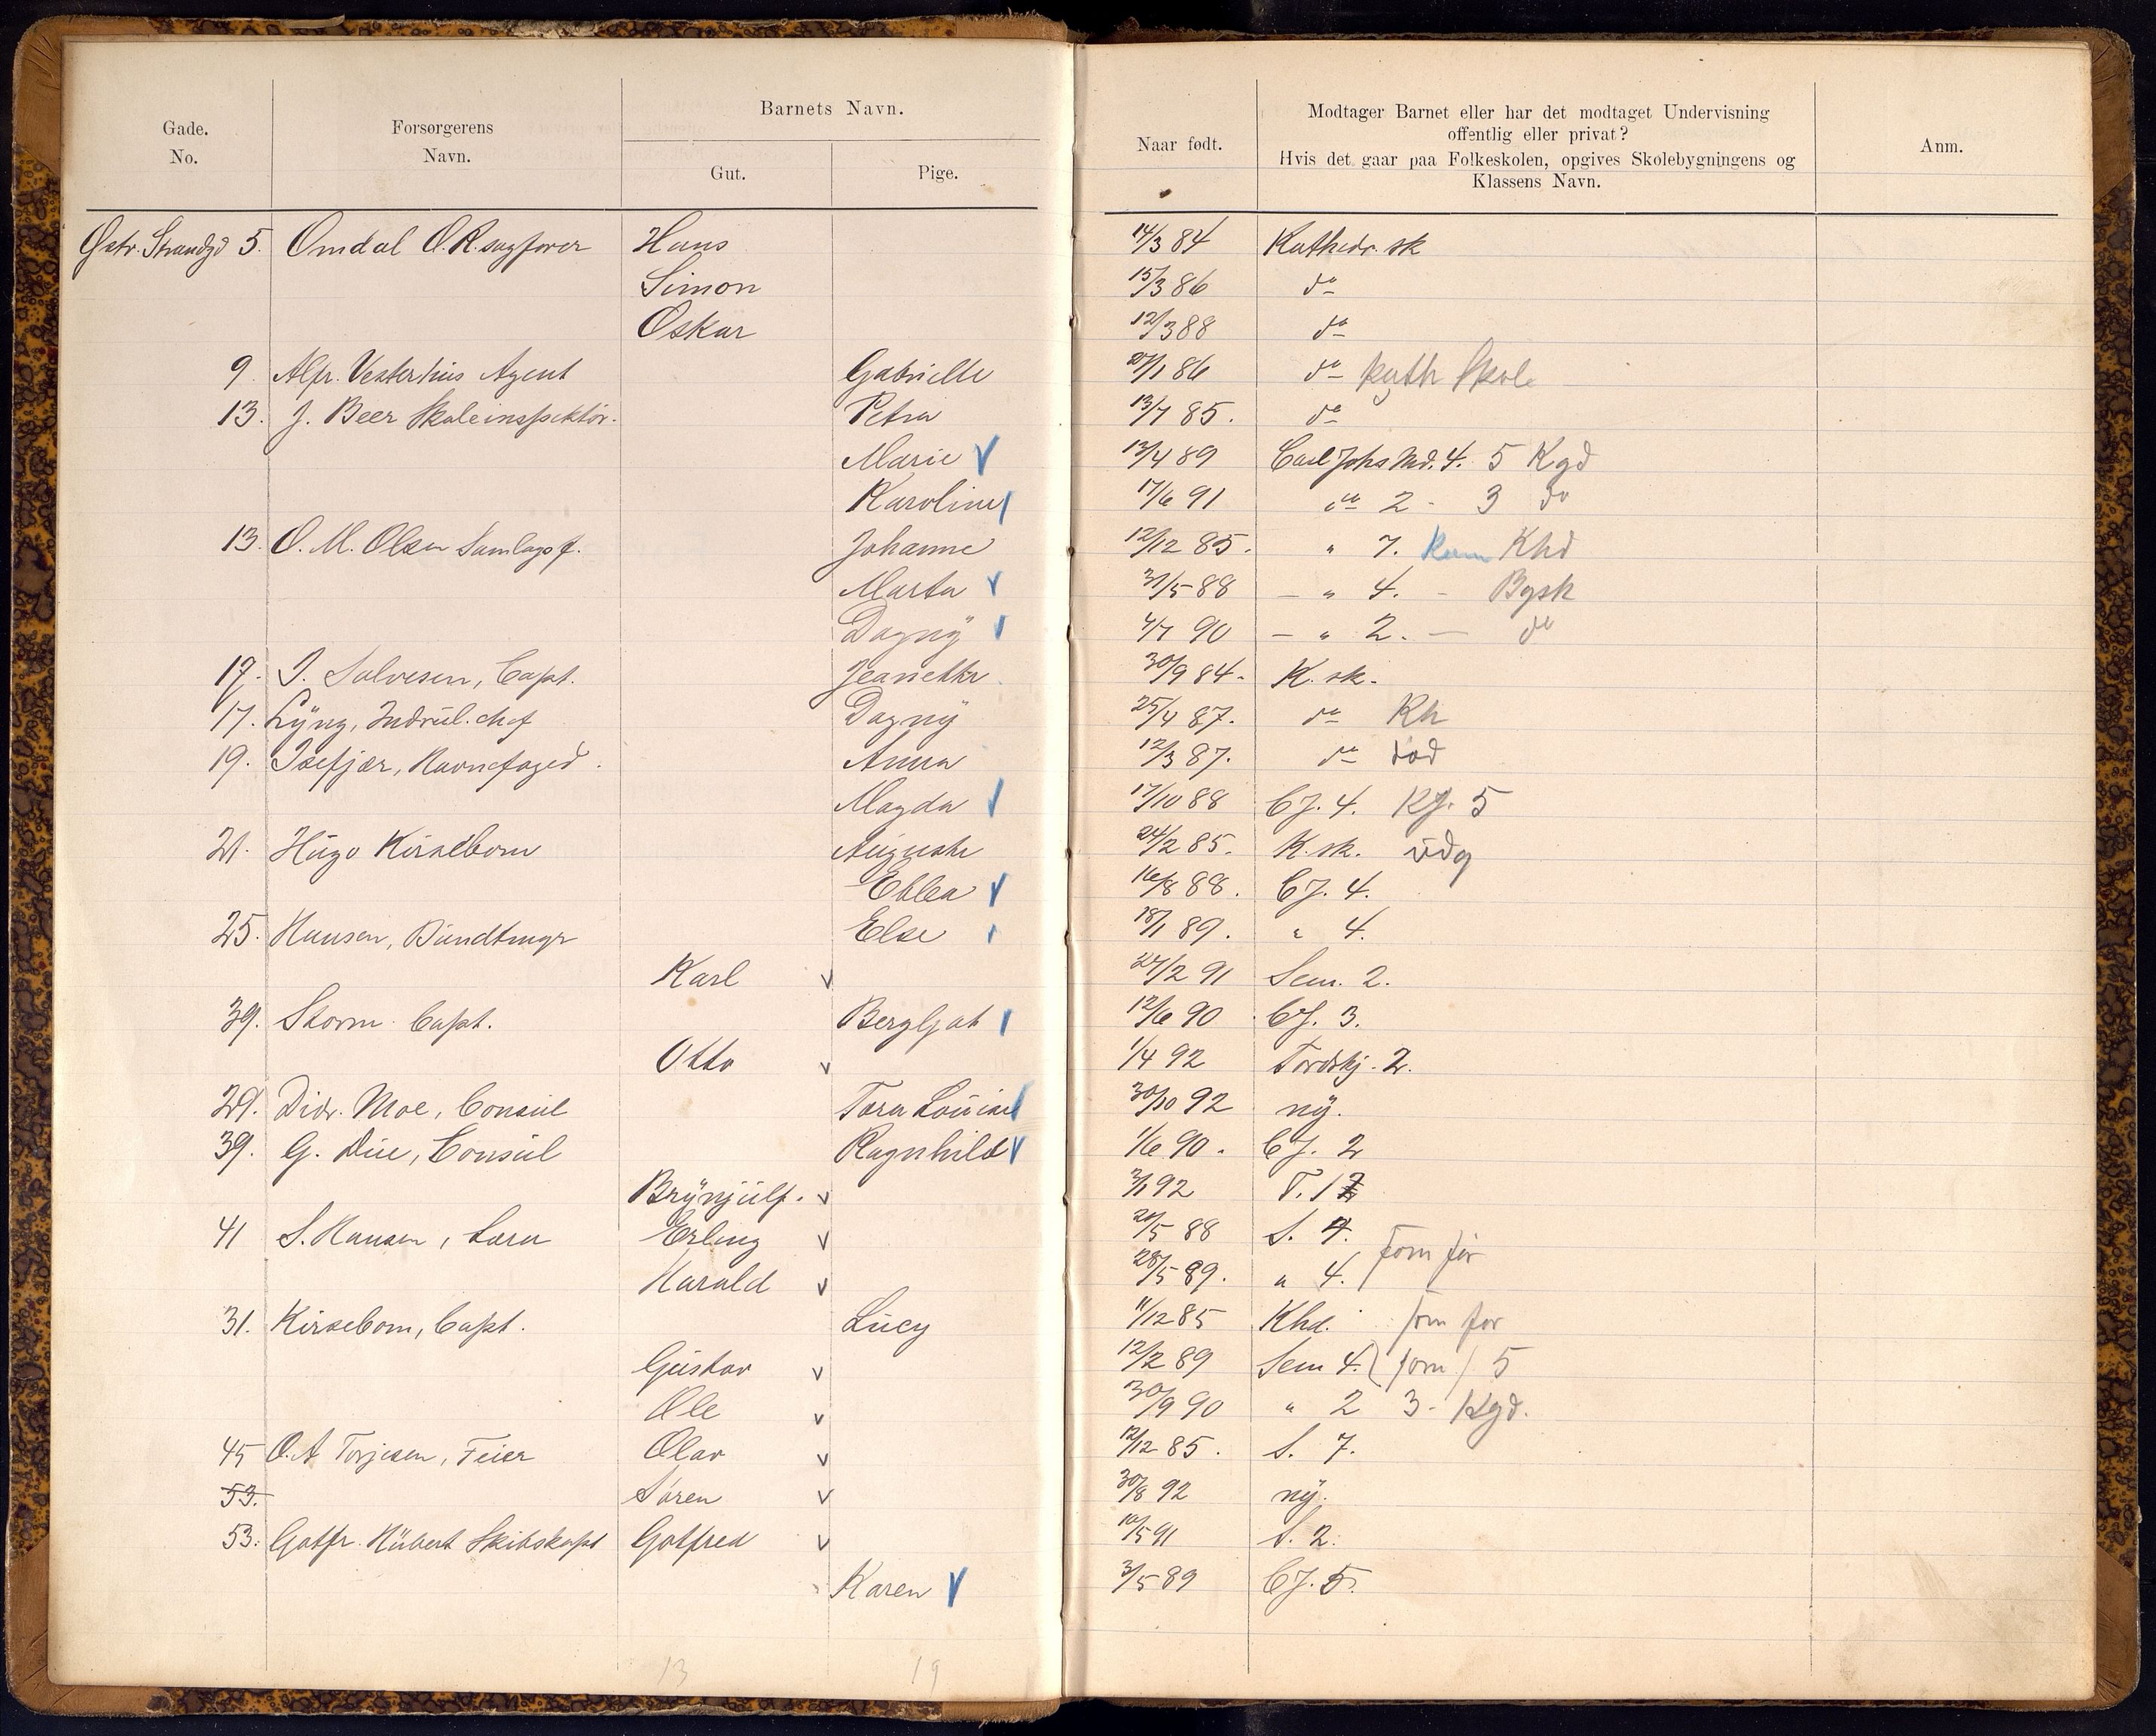 Gade.
No.
Forsørgerens
Navn.
Barnets Navn.
Gut.
Pige.
Naar født.
Modtager Barnet eller har det modtaget Undervisning
offentlig eller privat?
Hvis det gaar paa Folkeskolen, opgives Skolebygningens og
Klassens Navn.
Anm.
Østr. Strandgd 5. Omdal O.R.sagfører Hans 14/3 84 Kathedr. sk
Simon 15/3 86 do
Oskar 12/3 88 do
9. Alfr. Vesterhus Agent Gabrielle 27/1 86 do Kath Skole
13. J. Beer Skoleinspektør. Petra 13/7 85. do
Marie V 13/4 89 Carl Johs Md. 4. 5 Kgd
Karoline 17/6 91 do 2 - 3 do
13. O. M. Olsen Samlagsf. Johanne 12/12 85. " 7. Khd
Marta v 31/5 88 - " 4. - Bysk
Dagny 4/7 90 - " 2. - do
17. J. Salvesen, Capt. Jeanette 30/9 84. K. sk.
17. Lyng, Indrul. chef Dagny 25/4 87. do Kh
19. Isefjær, Havnefoged. Anna 12/3 87. do død
Magda 17/10 88 CJ. 4. KJ. 5
21. Hugo Kirsebom Auguste 24/2 85. K. sk. udg
Ebba v 16/8 88. CJ. 4.
25. Hansen, Bundtmgr Else 18/1 89. " 4.
Karl v 27/2 91 Sem. 2.
39. Storm Capt. Bergljot 12/6 90 CJ. 3.
Otto v 1/4 92 Tordskj. 2.
29. Didr. Moe, Consul Tora Louise 30/10 92 ny.
39. G. Due, Consul Ragnhild v 1/6 90. CJ. 2
Brynjulf. v 3/1 92 T. 1
41 S. Hansen, Lærer Erling v 20/5 88 S. 4. som før
Harald v 28/5 89. " 4.
31. Kirsebom, Capt. Lucy 11/12 85 Khd. som før
Gustav v 12/2 89 Sem 4. som 5
Ole v 30/9 90 " 2 3 - Kgd.
45 O. A Torjesen, Feier Olav v 12/12 85. S. 7.
53. Søren v 30/8 92 ny.
53. Gotfr. Hubert Skibskapt Gotfred v 10/5 91 S. 2.
Karen V 3/5 89 CJ. 5.
13 19